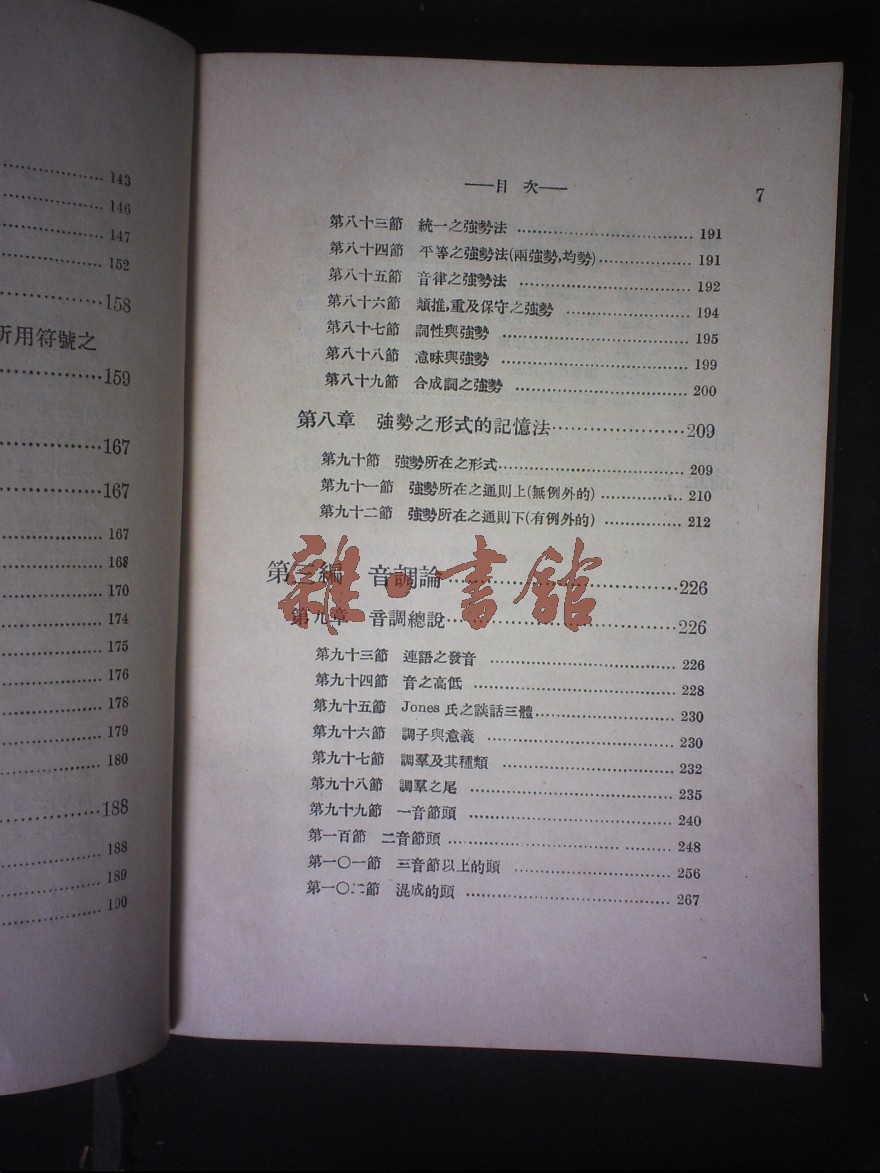 143
146
147
152
158
所用符號之
159
167
167
167
168
170
174
175
176
178
179
180
188
188
189
190
——目 次——
7
第八十三節 統一之強勢法 191
第八十四節 平等之強勢法(兩強勢,均勢) 191
第八十五節 音律之強勢法 192
第八十六節 類推,重及保守之強勢 194
第八十七節 詞性與強勢 195
第八十八節 意味與強勢 199
第八十九節 合成詞之強勢 200
第八章 強勢之形式的記憶法 209
第九十節 強勢所在之形式 209
第九十一節 強勢所在之通則上(無例外的) 210
第九十二節 強勢所在之通則下(有例外的) 212
第三編 音調論 226
雜·書館
第九章 音調總說 226
第九十三節 連語之發音 226
第九十四節 音之高低 228
第九十五節 Jones 氏之談話三體 230
第九十六節 調子與意義 230
第九十七節 調羣及其種類 232
第九十八節 調羣之尾 235
第九十九節 一音節頭 240
第一百節 二音節頭 248
第一〇一節 三音節以上的頭 256
第一〇二節 混成的頭 267